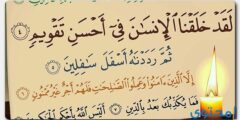 لَقَدْ خَلَقْنَا ٱلْإِنسَٰنَ فِىٓ أَحْسَنِ تَقْوِيمٍ ٤
ثُمَّ رَدَدْنَٰهُ أَسْفَلَ سَٰفِلِينَ ٥
إِلَّا ٱلَّذِينَ ءَامَنُوا۟ وَعَمِلُوا۟ ٱلصَّٰلِحَٰتِ فَلَهُمْ أَجْرٌ غَيْرُ مَمْنُونٍ ٦
فَمَا يُكَذِّبُكَ بَعْدُ بِٱلدِّينِ ٧ أَلَيْسَ ٱللَّهُ بِأَحْكَمِ